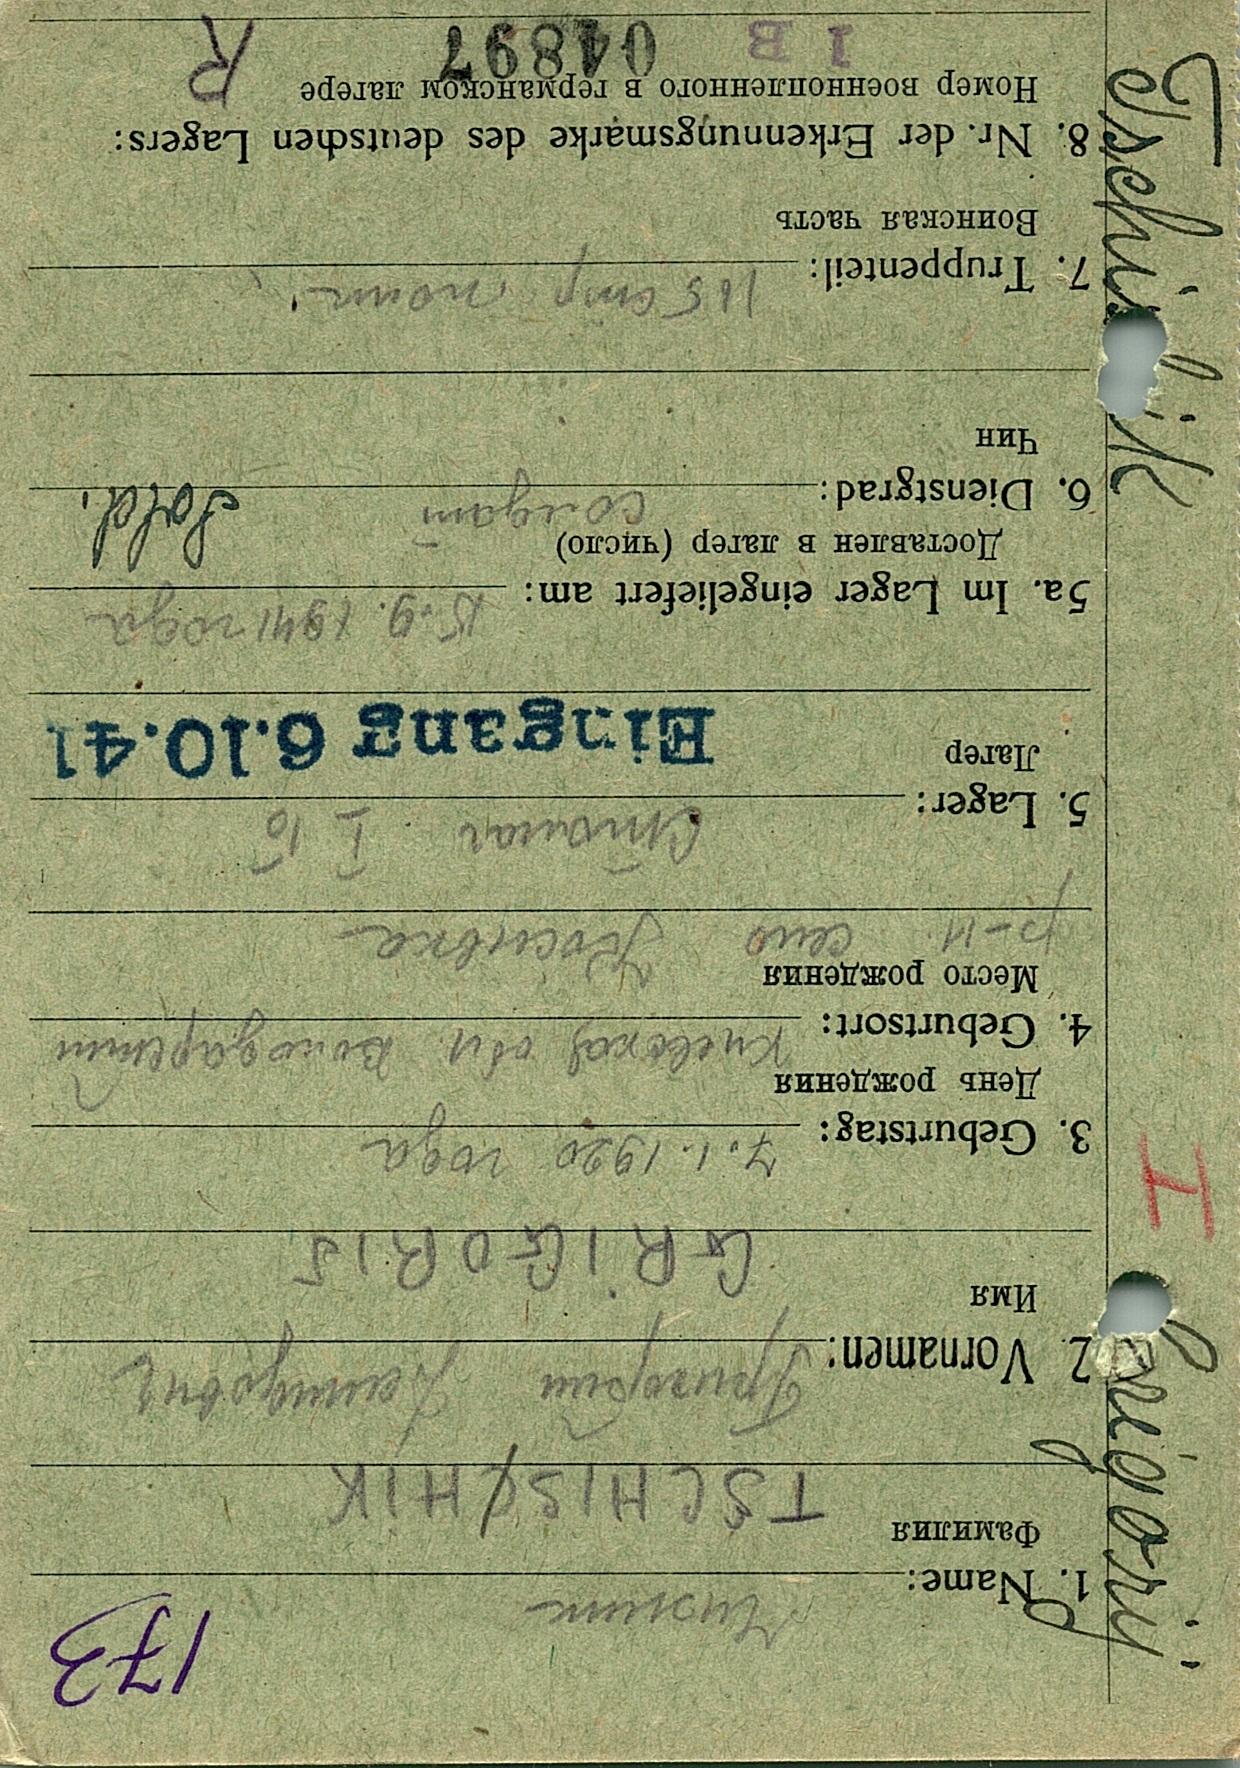 173
1. Name: Чижик
Фамилия
TSCHISCHIK
2. Vornamen: Григорий
Имя
GRIGORIJ
3. Geburtstag: 7.1.1920 года
День рождения
4. Geburtsort: Киевская обл Володарский
Место рождения
р-н. село Косивка
5. Lager: Сталаг I Б
Лагер
Eingang 6.10.41
5a. Im Lager eingeliefert am: 15.9.1941 года
Доставлен в лагер (число)
6. Dienstgrad: солдат Sold.
Чин
7. Truppenteil: 165 стр. полк
Воинская часть
8. Nr. der Erkennungsmarke des deutschen Lagers:
Номер военнопленного в германском лагере
1 B 04897 R
Grigorij I Tschischik